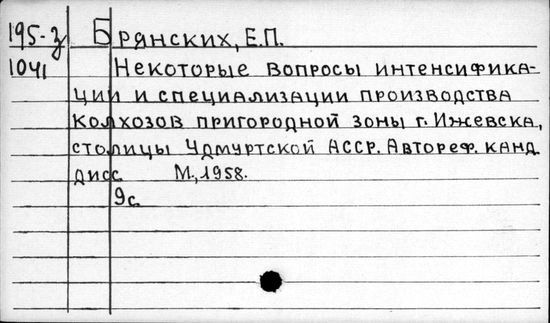 195-з Брянских, Е.П.
1041 Некоторые вопросы интенсифика-
ции и специализации производства
колхозов пригородной зоны г. Ижевска,
столицы Удмуртской АССР. Автореф. канд.
дисс. М., 1958.
9с.